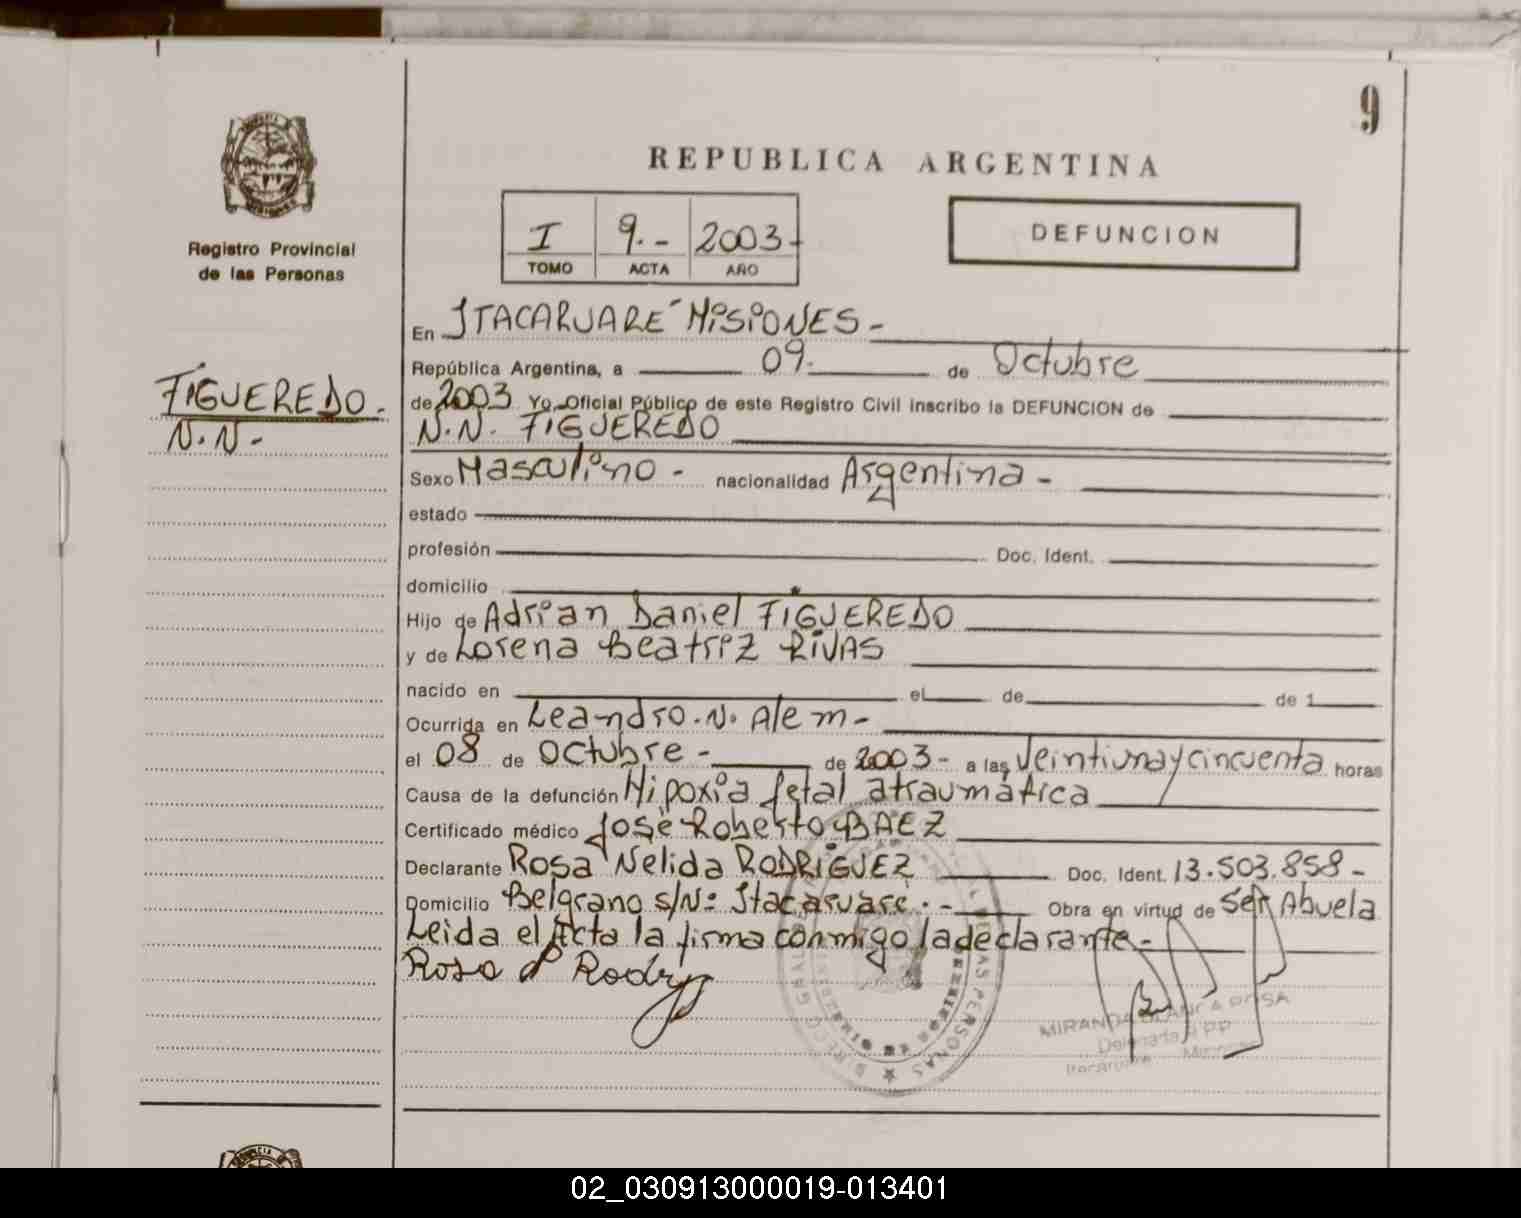 9
REPUBLICA ARGENTINA
Registro Provincial
de las Personas
I 9.- 2003-
TOMO ACTA AÑO
DEFUNCION
FIGUEREDO-
N.N-
En ITACARUARE MISIONES-
República Argentina, a 09. de Octubre
de 2003 Yo, Oficial Público de este Registro Civil inscribo la DEFUNCION de
N.N. FIGUEREDO
Sexo Masculino - nacionalidad Argentina -
estado
profesión Doc. Ident.
domicilio
Hijo de Adrian Daniel FIGUEREDO
y de Lorena Beatriz RIVAS
nacido en el de de 1
Ocurrida en Leandro.N. Alem-
el 08 de Octubre- de 2003- a las Veintiuna y cincuenta horas
Causa de la defunción Hipoxia fetal atraumática
Certificado médico José Roberto BAEZ
Declarante Rosa Nelida RODRIGUEZ Doc. Ident. 13.503.858-
Domicilio Belgrano s/Nº Itacaruaré.- Obra en virtud de Ser Abuela
Leida el Acta la firma conmigo la declarante-
Rosa
MIRANDA BLANCA ROSA
Delegada R.P.P
Itacaruare Misiones
PERSONAS
02_030913000019-013401